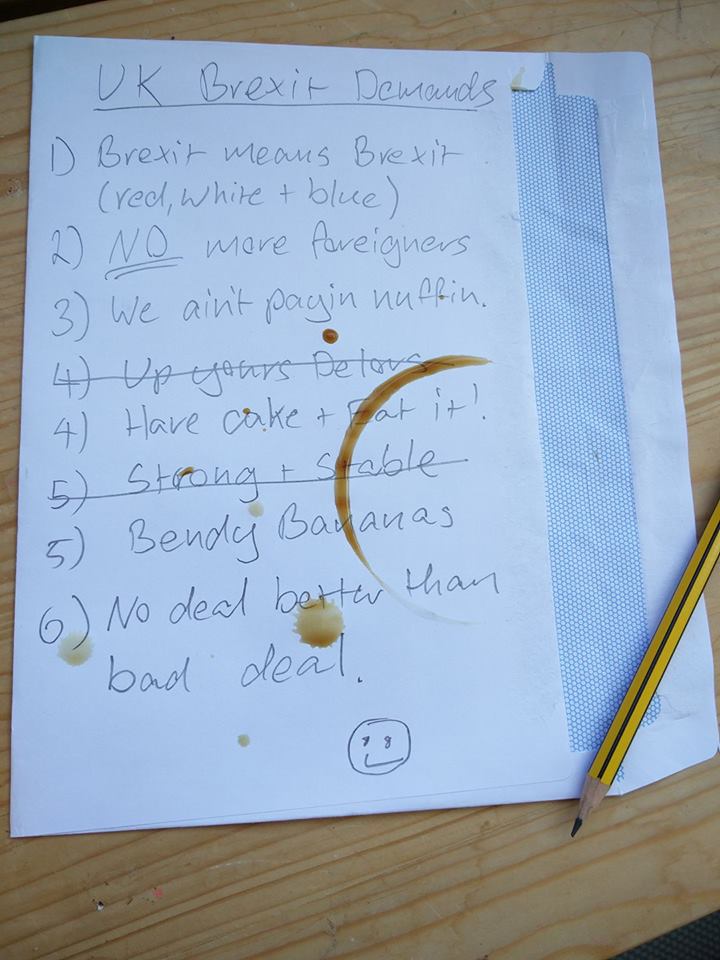 UK Brexit Demands
1) Brexit means Brexit
(red, white + blue)
2) NO more foreigners
3) We ain't payin nuffin.
4) Up yours Delors
4) Have cake + Eat it!
5) Strong + Stable
5) Bendy Bananas
6) No deal better than
bad deal.